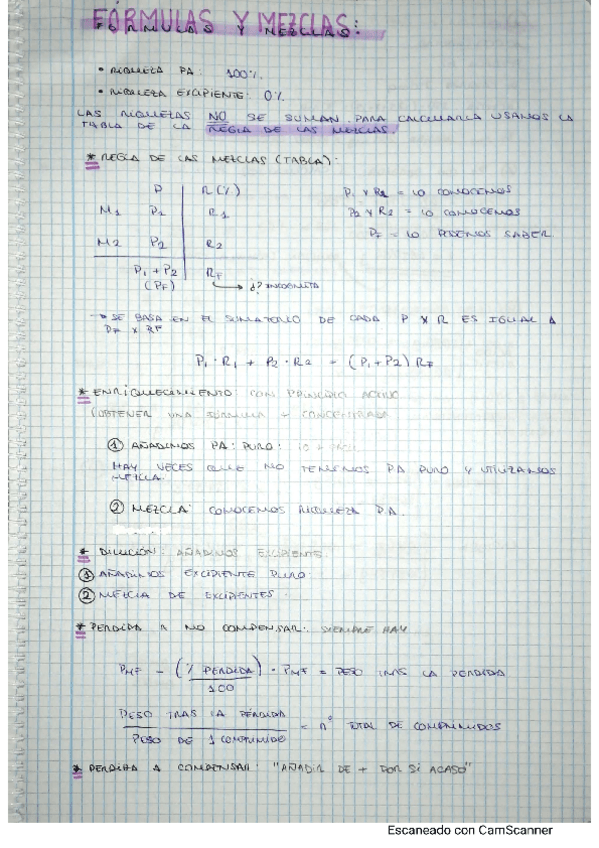 FÓRMULAS Y MEZCLAS:
• RIQUEZA PA: 100%.
• RIQUEZA EXCIPIENTE: 0%
LAS RIQUEZAS NO SE SUMAN. PARA CALCULARLA USAMOS LA
TABLA DE LA REGLA DE LAS MEZCLAS.
* REGLA DE LAS MEZCLAS (TABLA):
P R (%)
M1 P1 R1
M2 P2 R2
P1 + P2 RF
(PF) → ¿? INCOGNITA
P1 Y R1 = LO CONOCEMOS
P2 Y R2 = LO CONOCEMOS
PF = LO PODEMOS SABER
→ SE BASA EN EL SUMATORIO DE CADA P X R ES IGUAL A
PF X RF
P1 · R1 + P2 · R2 = (P1 + P2) RF
* ENRIQUECIMIENTO: CON PRINCIPIO ACTIVO
(OBTENER UNA FÓRMULA + CONCENTRADA
① AÑADIMOS PA: PURO:
HAY VECES QUE NO TENEMOS PA PURO Y UTILIZAMOS
MEZCLA.
② MEZCLA: CONOCEMOS RIQUEZA PA.
* DILUCIÓN: AÑADIMOS EXCIPIENTE.
① AÑADIMOS EXCIPIENTE PURO
② MEZCLA DE EXCIPIENTES.
* PERDIDA A NO COMPENSAR: SIEMPRE HAY
PMF - (% PERDIDA / 100) · PMF = PESO TRAS LA PERDIDA
PESO TRAS LA PÉRDIDA / PESO DE 1 COMPRIMIDO = nº TOTAL DE COMPRIMIDOS
* PERDIDA A COMPENSAR: "AÑADIR DE + POR SI ACASO"
Escaneado con CamScanner